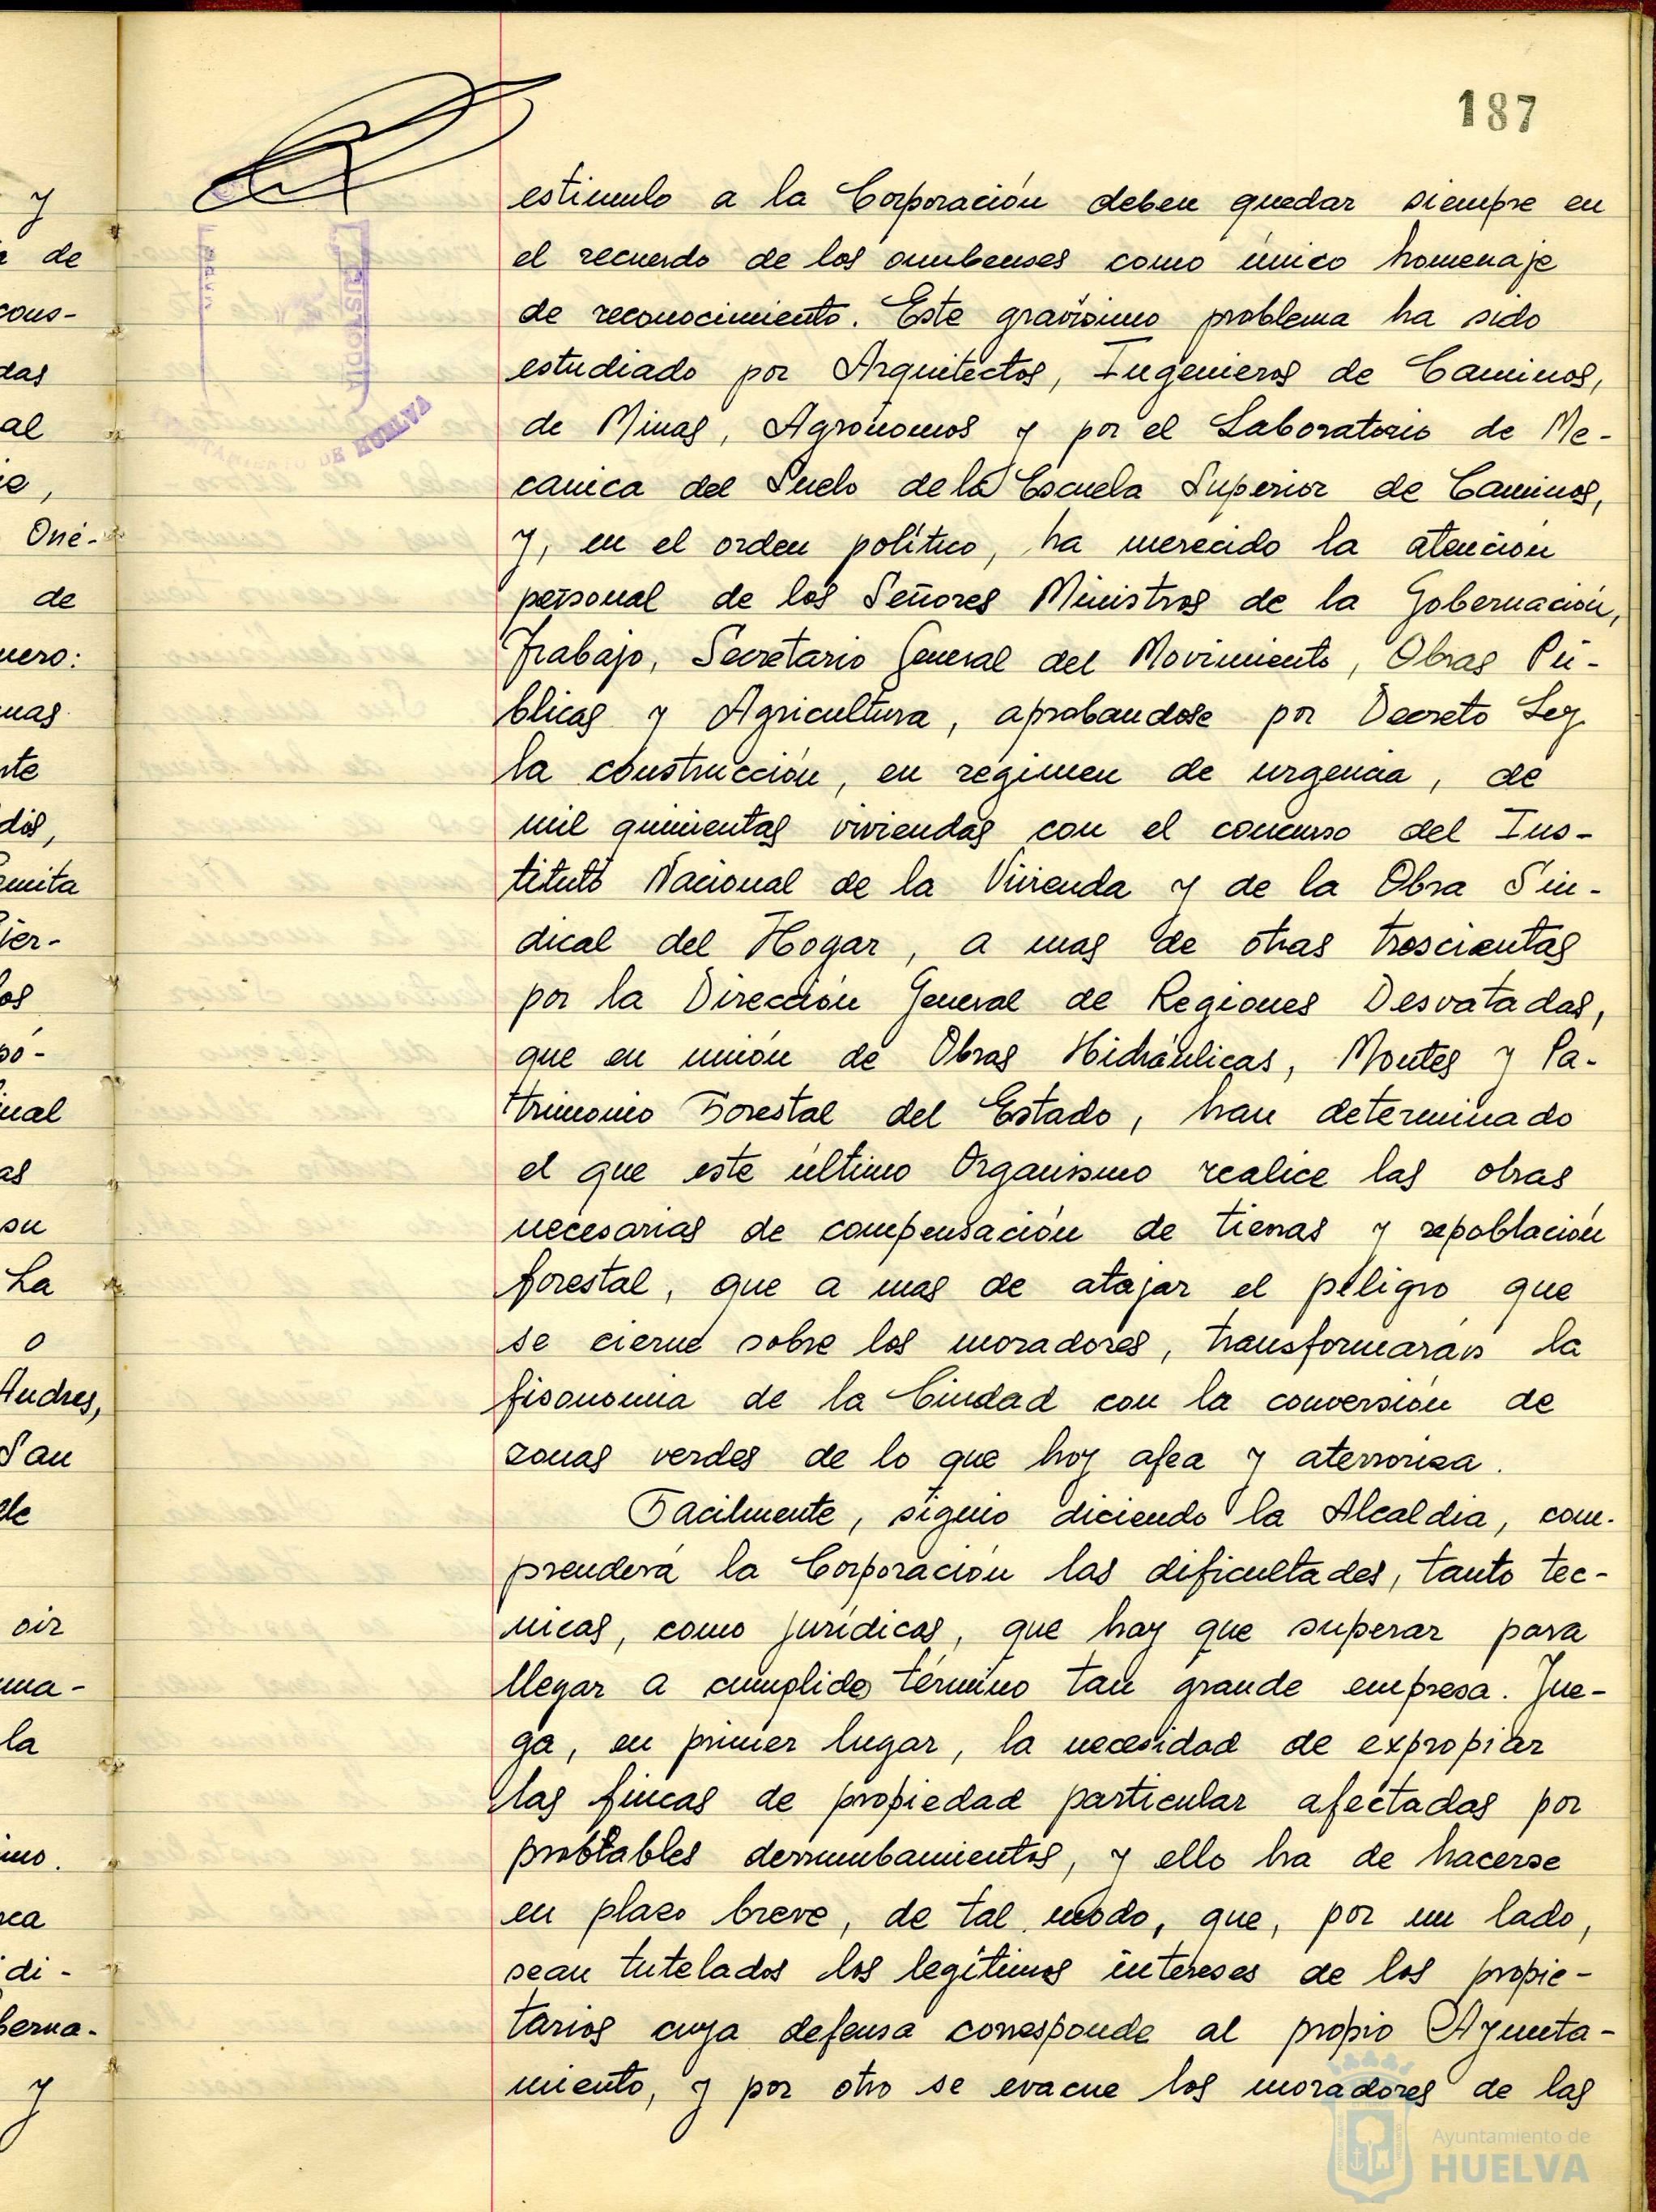 187
estimulo a la Corporación deben quedar siempre en
el recuerdo de los onubenses como único homenaje
de reconocimiento. Este gravísimo problema ha sido
estudiado por Arquitectos, Ingenieros de Caminos,
de Minas, Agrónomos y por el Laboratorio de Me-
canica del Suelo de la Escuela Superior de Caminos,
y, en el orden político, ha merecido la atención
personal de los Señores Ministros de la Gobernación,
Trabajo, Secretario General del Movimiento, Obras Pú-
blicas y Agricultura, aprobandose por Decreto Ley
la construcción, en regimen de urgencia, de
mil quinientas viviendas con el concurso del Ins-
tituto Nacional de la Vivienda y de la Obra Sin-
dical del Hogar, a mas de otras trescientas
por la Dirección General de Regiones Desvatadas,
que en unión de Obras Hidráulicas, Montes y Pa-
trimonio Forestal del Estado, han determinado
el que este último Organismo realice las obras
necesarias de compensación de tierras y repoblación
forestal, que a mas de atajar el peligro que
se cierne sobre los moradores, transformarán la
fisonomia de la Ciudad con la conversión de
zonas verdes de lo que hoy afea y aterroriza.
Facilmente, siguio diciendo la Alcaldia, com-
prenderá la Corporación las dificultades, tanto tec-
nicas, como jurídicas, que hay que superar para
llegar a cumplido término tan grande empresa. Jue-
ga, en primer lugar, la necesidad de expropiar
las fincas de propiedad particular afectadas por
probtables derrumbamientos, y ello ha de hacerse
en plazo breve, de tal modo, que, por un lado,
sean tutelados los legítimos intereses de los propie-
tarios cuya defensa corresponde al propio Ayunta-
miento, y por otro se evacue los moradores de las
y
de
cons-
das
al
Oné-
de
nero:
mas
La
o
Andres,
San
oir
ma-
la
di-
berna-
y
CUSTODIA
DE HUELVA
Ayuntamiento de
HUELVA